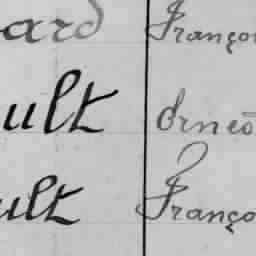 ard Franço
ult Ernes
ult Franço